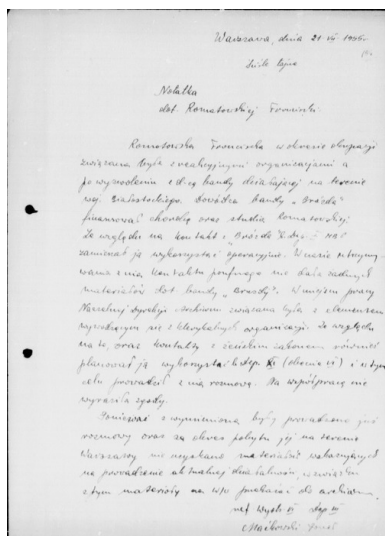 Warszawa, dnia 21 VII 1955 r.
Ściśle tajne
Notatka
dot. Romatowskiej Franciszki.
Romatowska Franciszka w okresie okupacji
związana była z reakcyjnymi organizacjami a
po wyzwoleniu z d-cą bandy działającej na terenie
woj. Białostockiego. Dowódca bandy
finansował chorobę oraz studia Romatowskiej.
Ze względu na kontakt z
zamierzał ją wykorzystać operacyjnie. W czasie utrzymy-
wania z nią kontaktu poufnego nie dała żadnych
materiałów dot. bandy W miejscu pracy
Naczelnej Dyrekcji Archiwów związana była z elementem
się z klerykalnych organizacji. Ze względu
na to, oraz kontakty z żeńskim zakonem również
planował ją wykorzystać Dep. XI (obecnie VI) i w tym
celu prowadził z nią rozmowę. Na współpracę nie
wyraziła zgody.
Ponieważ z wymienioną były prowadzone już
rozmowy oraz za okres pobytu jej na terenie
Warszawy nie uzyskano materiałów wskazujących
na prowadzenie aktualnej działalności, w związku
z tym materiały na w/w przekazać do archiwum.
Dep VI